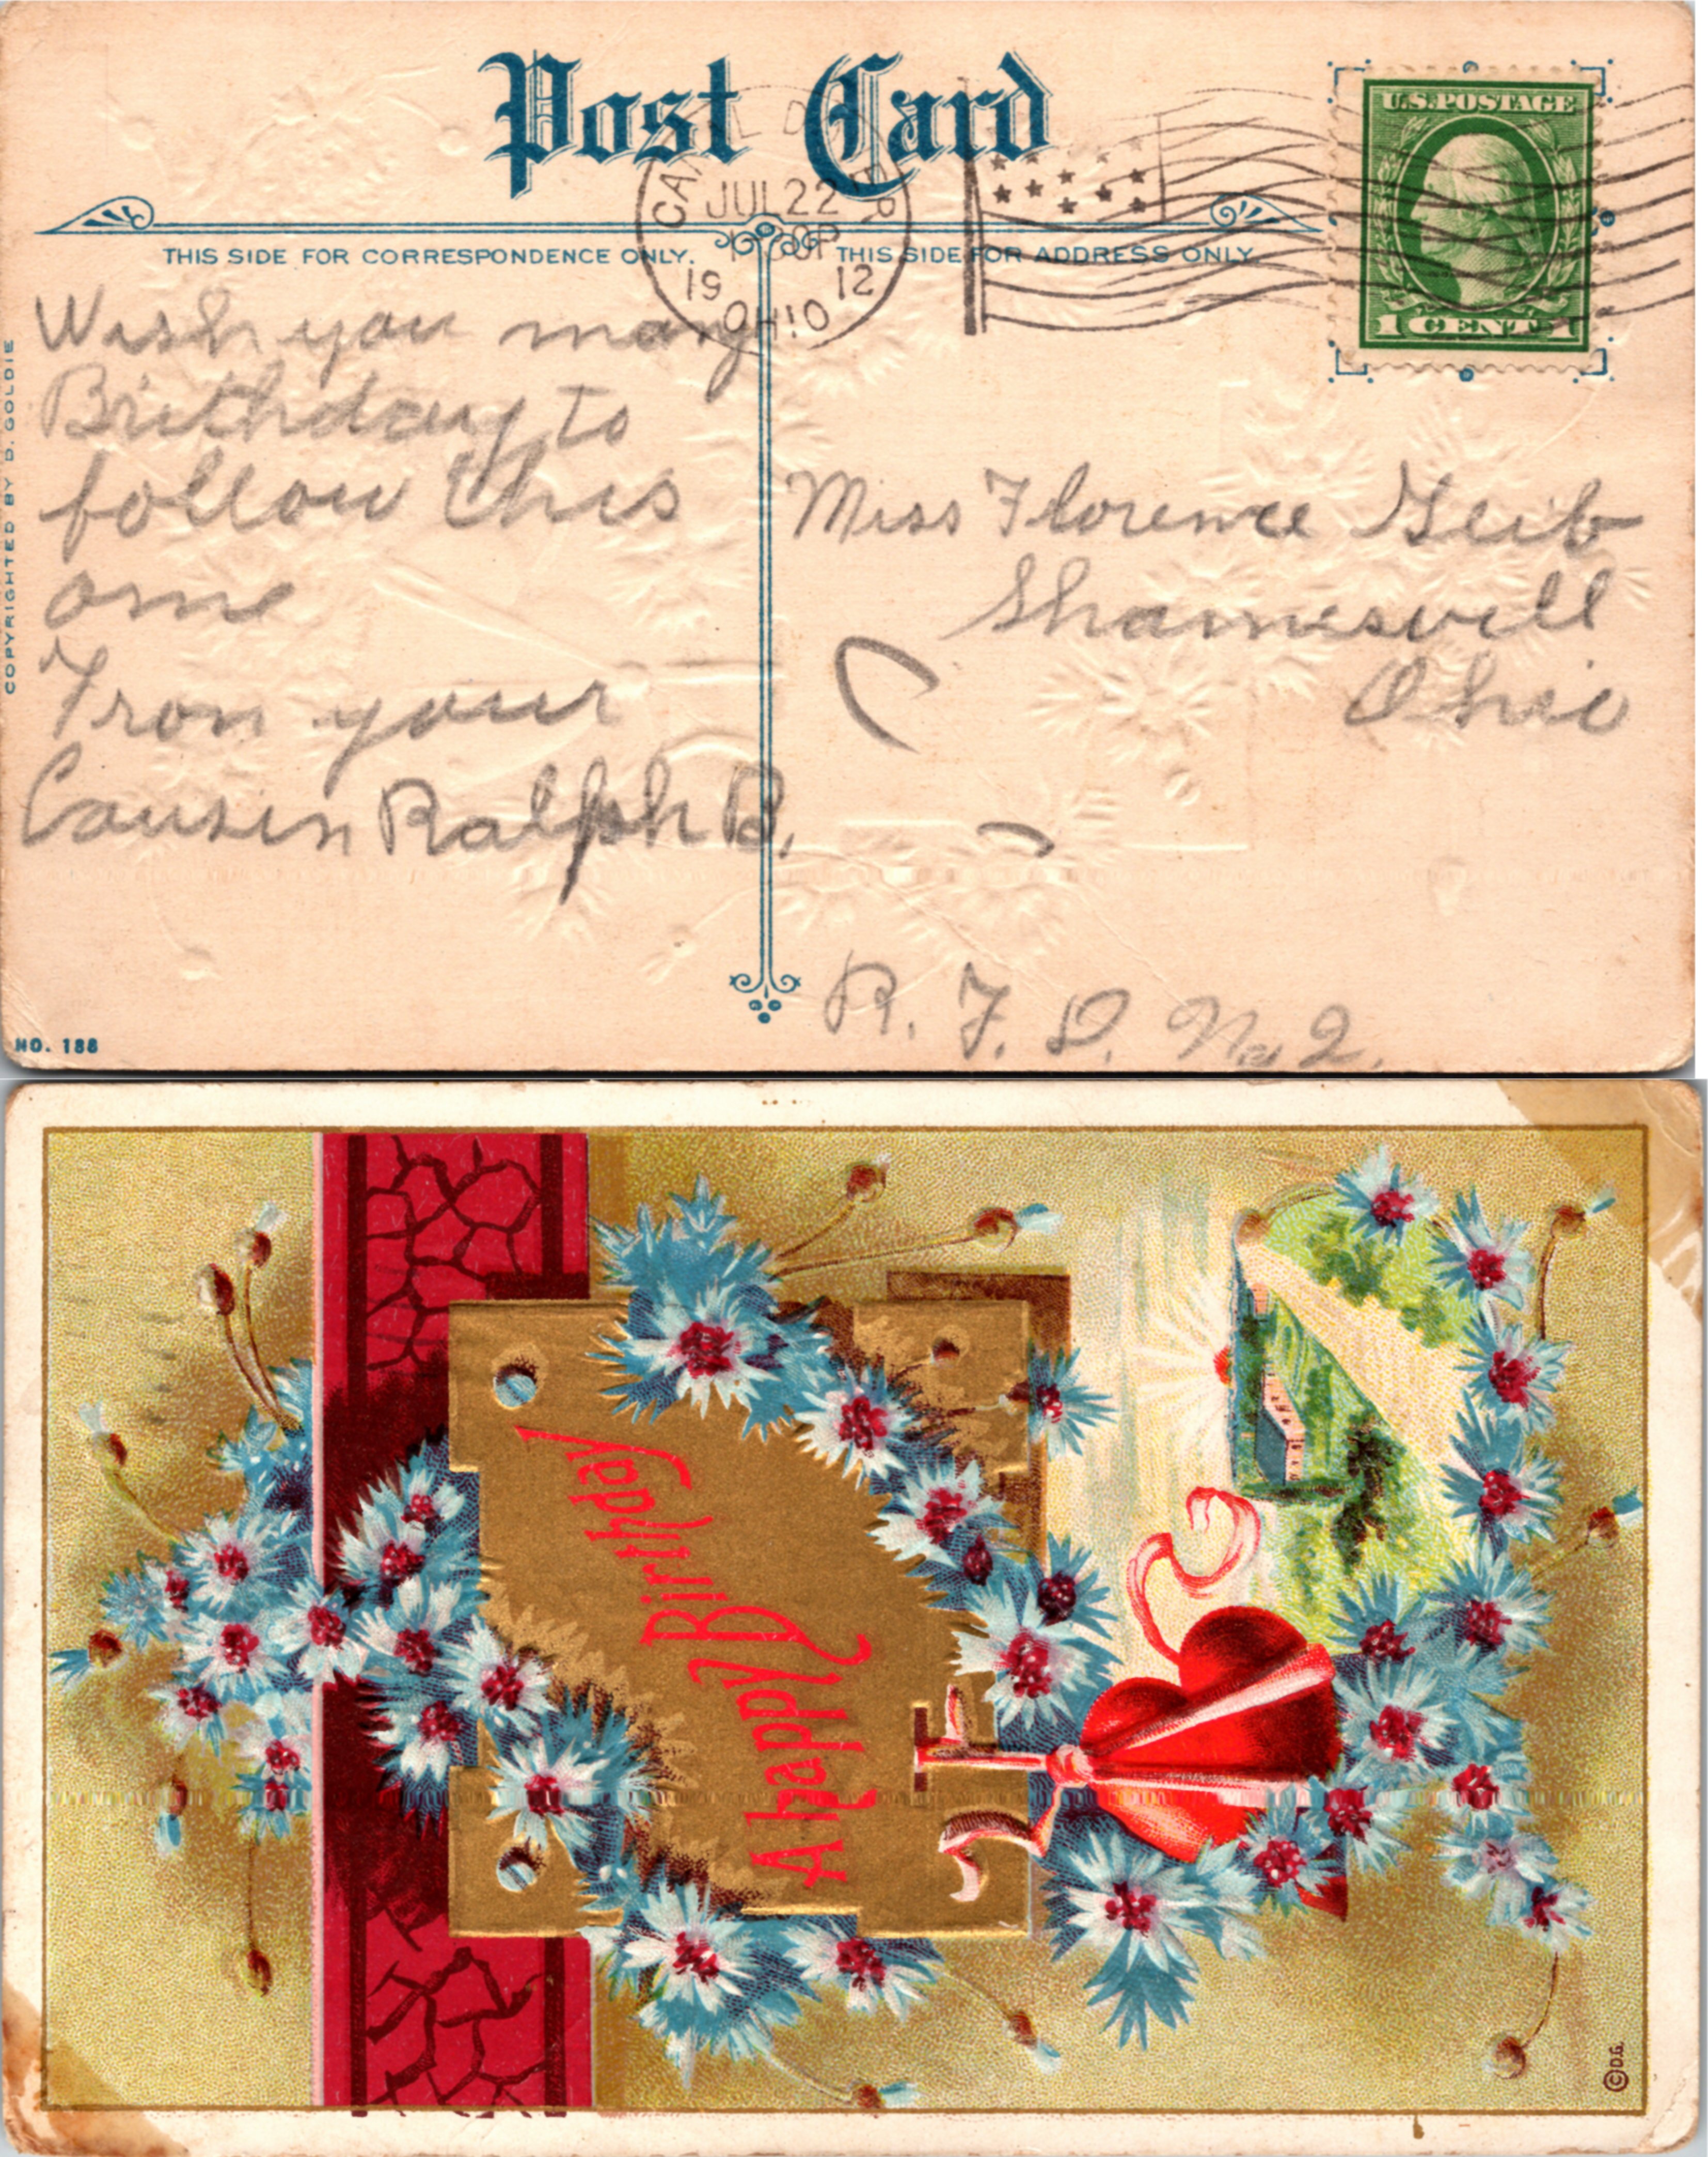 Post Card
CANAL DOVER
JUL 22
1912
OHIO
U.S. POSTAGE
1 CENT 1
THIS SIDE FOR CORRESPONDENCE ONLY.
THIS SIDE FOR ADDRESS ONLY
COPYRIGHTED BY D. GOLDIE
Wish you many
Birthday to
follow this
ome
From your
Causin Ralph B.
Miss Florence Geib
Shanesvill
Ohio
R. F. D. No 2.
NO. 188
A happy Birthday
© D.G.